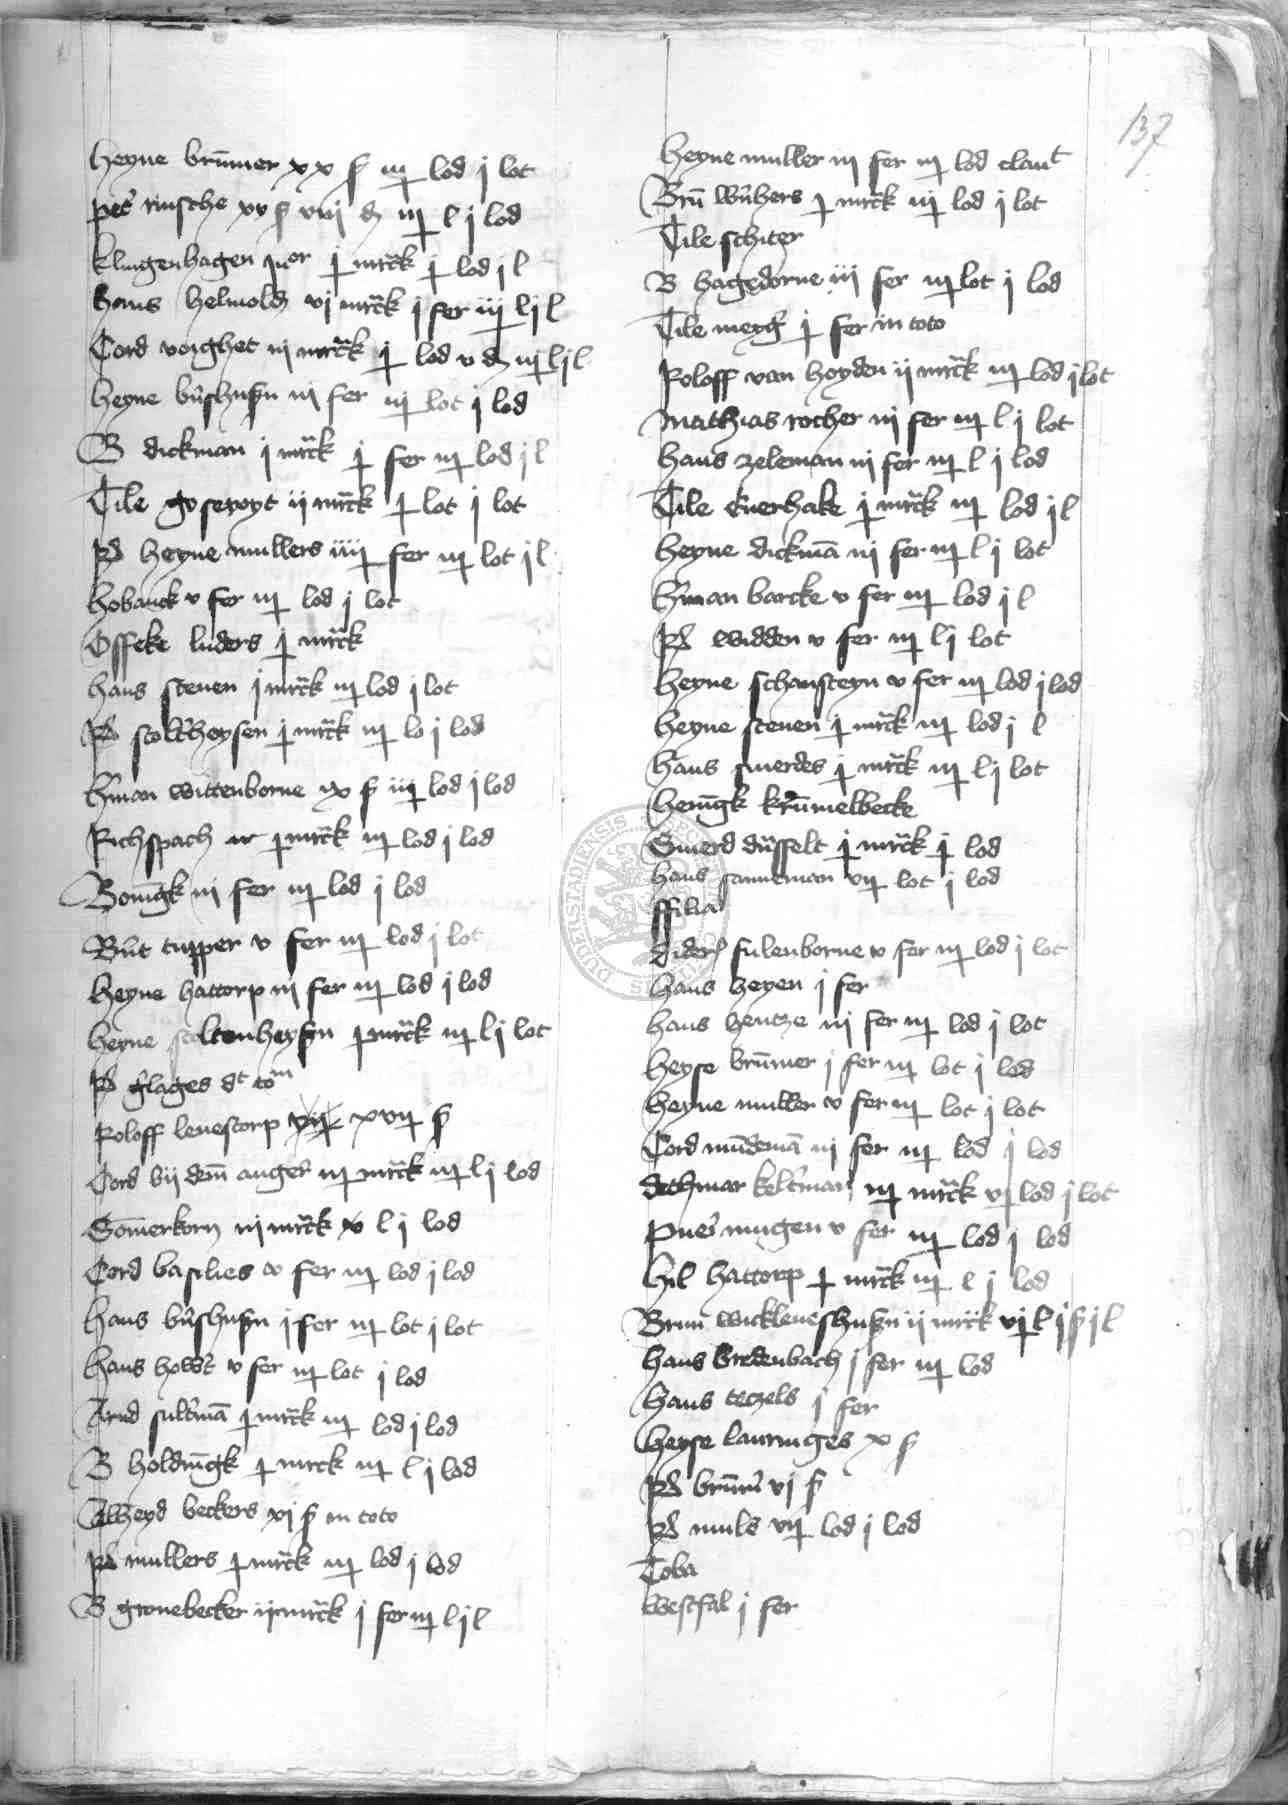 137
heyne brūmer xx ß iiį lod j lot
pet᷑ rinsche xx ß viij d iiį l j lod
klingenhagen iuor į mr̄ck į lod j l
hans helmold vj mr̄ck j fer iiį l j l
Cord voighet iij mr̄ck į lod v d iiį l j l
heyne bu᷑shußn iij fer iiį lot j lod
B dickman j mr̄ck į fer iiį lod j l
Tile goseroyt ij mr̄ck į lot j lot
Rel heyne mullers iiij fer iiį lot j l
hobanck v fer iiį lod j lot
Offeke luders į mr̄ck
hans steuen j mr̄ck iiį lod j lot
Rel stoltheysen į mr̄ck iiį lo j lod
h᷑man wittenborne ix ß iiį lod j lod
Richspach ar į mr̄ck iiį lod j lod
Bonīgk iij fer iiį lod j lod
B᷑t tupper v fer iiį lod j lot
heyne hattorp iij fer iiį lod j lod
heyne stoltenheyßn į mr̄ck iiį l j lot
Rel g᷑lages dt tom
Roloff leuestorp xviį ß
Cord bij dem̄ anger᷑ iiį mr̄ck iiį l j lod
Som̄erkorn iij mr̄ck v l j lod
Cord basilies v fer iiį lod j lod
hans bu᷑shußn j fer iiį lot j lot
hans how᷑t v fer iiį lot j lod
Arnd sult᷑mā į mr̄ck iiį lod j lod
B holdīngk į mrck iiį l j lod
Alheyd beckers xj ß in toto
Rel mullers į mr̄ck iiį lod j lod
B gronebecker ij mr̄ck j fer iiį l j l
heyne muller iij fer iiį lod claut
Brū wu᷑hers į mr̄ck iiį lod j lot
Tile schiter
B hagedorne iij fer iiį lot j lod
Tile meyg᷑ į fer in toto
Roloff van heyden ij mr̄ck iiį lod j lot
mathias rocher iij fer iiį l j lot
hans zeleman iij fer iiį l j lod
Tile Euerhake į mr̄ck iiį lod j l
heyne dickmā iij fer iiį l j lot
h᷑man barcke v fer iiį lod j l
Rel widden v fer iiį l j lot
heyne schansteyn v fer iiį lod j lod
heyne steuen į mr̄ck iiį lod j l
hans smerdes į mr̄ck iiį l j lot
henīgk krūmelbecke
Smerd dusselt į mr̄ck į lod
hans sanneman viį lot j lod
ffilia
dider᷑ sulenborne v fer iiį lod j lot
hans heyen j fer
hans hentze iij fer iiį lod j lot
heyse brūmer j fer iiį lot j lod
heyne muller v fer iiį lot j lot
Cord mūdemā iij fer iiį lod j lod
dethmar kelt᷑man iiį mr̄ck vį lod j lot
mugen v fer iiį lod j lod
hil hattorp į mr̄ck iiį l j lod
Brun wickleueshußn ij mr̄ck vį l j ß j l
hans bredenbach j fer iiį lod
hans tetzels j fer
heyse lauringes x ß
Rel brūm᷑ vj ß
Rel muls viį lod j lod
Toba
westfal j fer